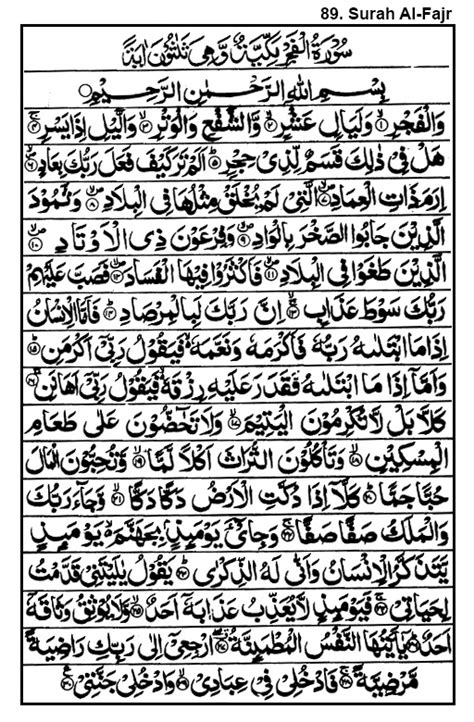 89. Surah Al-Fajr
سُوْرَةُ الْفَجْرِ مَكِّيَّةٌ وَّهِيَ ثَلٰثُوْنَ اٰيَةً
بِسْمِ اللّٰهِ الرَّحْمٰنِ الرَّحِيْمِ
وَالْفَجْرِ ۱ وَلَيَالٍ عَشْرٍ ۲ وَّالشَّفْعِ وَالْوَتْرِ ۳ وَالَّيْلِ اِذَا يَسْرِ ۴
هَلْ فِيْ ذٰلِكَ قَسَمٌ لِّذِيْ حِجْرٍ ۵ اَلَمْ تَرَ كَيْفَ فَعَلَ رَبُّكَ بِعَادٍ ۶
اِرَمَ ذَاتِ الْعِمَادِ ۷ الَّتِيْ لَمْ يُخْلَقْ مِثْلُهَا فِي الْبِلَادِ ۸ وَثَمُوْدَ
الَّذِيْنَ جَابُوا الصَّخْرَ بِالْوَادِ ۹ وَفِرْعَوْنَ ذِي الْاَوْتَادِ ۱۰
الَّذِيْنَ طَغَوْا فِي الْبِلَادِ ۱۱ فَاَكْثَرُوْا فِيْهَا الْفَسَادَ ۱۲ فَصَبَّ عَلَيْهِمْ
رَبُّكَ سَوْطَ عَذَابٍ ۱۳ اِنَّ رَبَّكَ لَبِالْمِرْصَادِ ۱۴ فَاَمَّا الْاِنْسَانُ
اِذَا مَا ابْتَلٰىهُ رَبُّهٗ فَاَكْرَمَهٗ وَنَعَّمَهٗ فَيَقُوْلُ رَبِّيْۤ اَكْرَمَنِ ۱۵
وَاَمَّاۤ اِذَا مَا ابْتَلٰىهُ فَقَدَرَ عَلَيْهِ رِزْقَهٗ فَيَقُوْلُ رَبِّيْۤ اَهَانَنِ ۱۶
كَلَّا بَلْ لَّا تُكْرِمُوْنَ الْيَتِيْمَ ۱۷ وَلَا تَحٰٓضُّوْنَ عَلٰى طَعَامِ
الْمِسْكِيْنِ ۱۸ وَتَاْكُلُوْنَ التُّرَاثَ اَكْلًا لَّمًّا ۱۹ وَّتُحِبُّوْنَ الْمَالَ
حُبًّا جَمًّا ۲۰ كَلَّاۤ اِذَا دُكَّتِ الْاَرْضُ دَكًّا دَكًّا ۲۱ وَّجَآءَ رَبُّكَ
وَالْمَلَكُ صَفًّا صَفًّا ۲۲ وَجِايْٓءَ يَوْمَئِذٍۭ بِجَهَنَّمَ يَوْمَئِذٍ
يَّتَذَكَّرُ الْاِنْسَانُ وَاَنّٰى لَهُ الذِّكْرٰى ۲۳ يَقُوْلُ يٰلَيْتَنِيْ قَدَّمْتُ
لِحَيَاتِيْ ۲۴ فَيَوْمَئِذٍ لَّا يُعَذِّبُ عَذَابَهٗۤ اَحَدٌ ۲۵ وَّلَا يُوْثِقُ وَثَاقَهٗۤ
اَحَدٌ ۲۶ يٰۤاَيَّتُهَا النَّفْسُ الْمُطْمَئِنَّةُ ۲۷ ارْجِعِيْۤ اِلٰى رَبِّكِ رَاضِيَةً
مَّرْضِيَّةً ۲۸ فَادْخُلِيْ فِيْ عِبَادِيْ ۲۹ وَادْخُلِيْ جَنَّتِيْ ۳۰